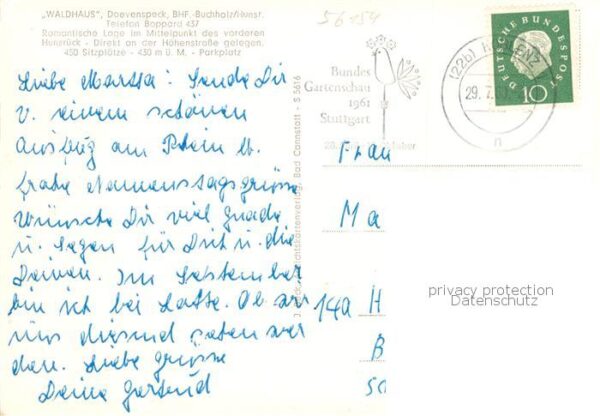 „WALDHAUS", Daevenspeck, BHF.-Buchholz/Hunsr.
Telefon Boppard 437
Romantische Lage im Mittelpunkt des vorderen
Hunsrück - Direkt an der Höhenstraße gelegen.
450 Sitzplätze - 430 m ü. M. - Parkplatz
56154
Bundes
Gartenschau
1961
Stuttgart
(22b) KOBLENZ
29. 7. 61
n
DEUTSCHE BUNDESPOST
10
Liebe Martha! Sende Dir
v. einem schönen
Ausflug am Rhein
frohe Namenstagsgrüsse
Wünsche Dir viel Gnade
u. Segen für Dich u. die
Deinen. Im September
bin ich bei Lotte. Ob wir
uns diesmal sehen wer
den. Liebe Grüsse
Deine Gertrud
Bad Cannstatt - S 5616
Frau
Ma
14a H
B
privacy protection
Datenschutz